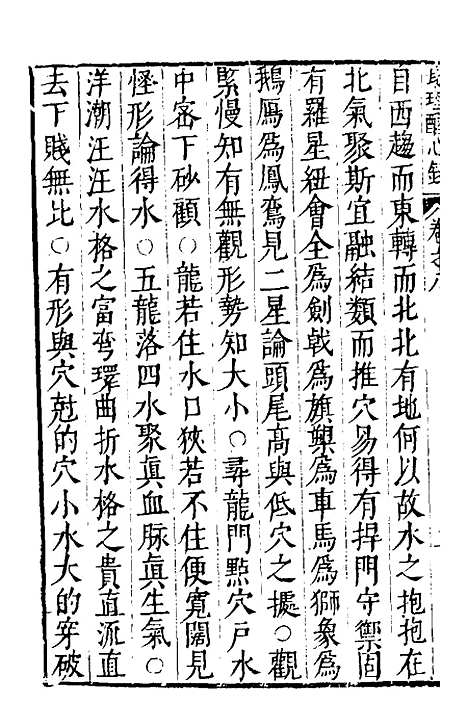 地理醒心錄 卷之八
自西趨而東轉而北北有地何以故水之抱抱在
北氣聚斯宜融結類而推穴易得有捍門守禦固
有羅星紐會全爲劍戟爲旗輿爲車馬爲獅象爲
鵝鳳爲鳳鸞見二星論頭尾高與低穴之據○觀
緊慢知有無觀形勢知大小○尋龍門點穴戸水
中客下砂顧○龍若住水口狹若不住便寬闊見
怪形論得水○五龍落四水聚眞血脉眞生氣○
洋潮汪汪水格之富弯環曲折水格之貴直流直
去下賤無比○有形與穴尅的穴小水大的穿破